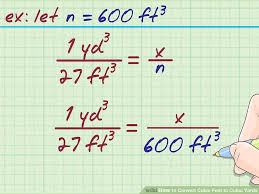 ex: let n = 600 ft³
1 yd³ / 27 ft³ = x / n
1 yd³ / 27 ft³ = x / 600 ft³
wikiHow to Convert Cubic Feet to Cubic Yards